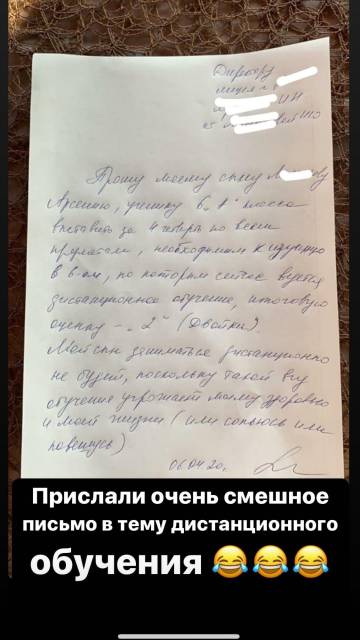 Директору
лицея
Прошу моему сыну
Арсению, ученику 8 класса
выставить за 4 четверть по всем
предметам, необходимым к
по которым сейчас ведется
дистанционное обучение, итоговую
оценку - „2“ (Двойки).
Мой сын заниматься дистанционно
не будет, поскольку такой вид
обучения угрожает моему здоровью
и моей жизни (или сопьюсь или
повешусь)
06.04.20г.
Прислали очень смешное
письмо в тему дистанционного
обучения 😂😂😂